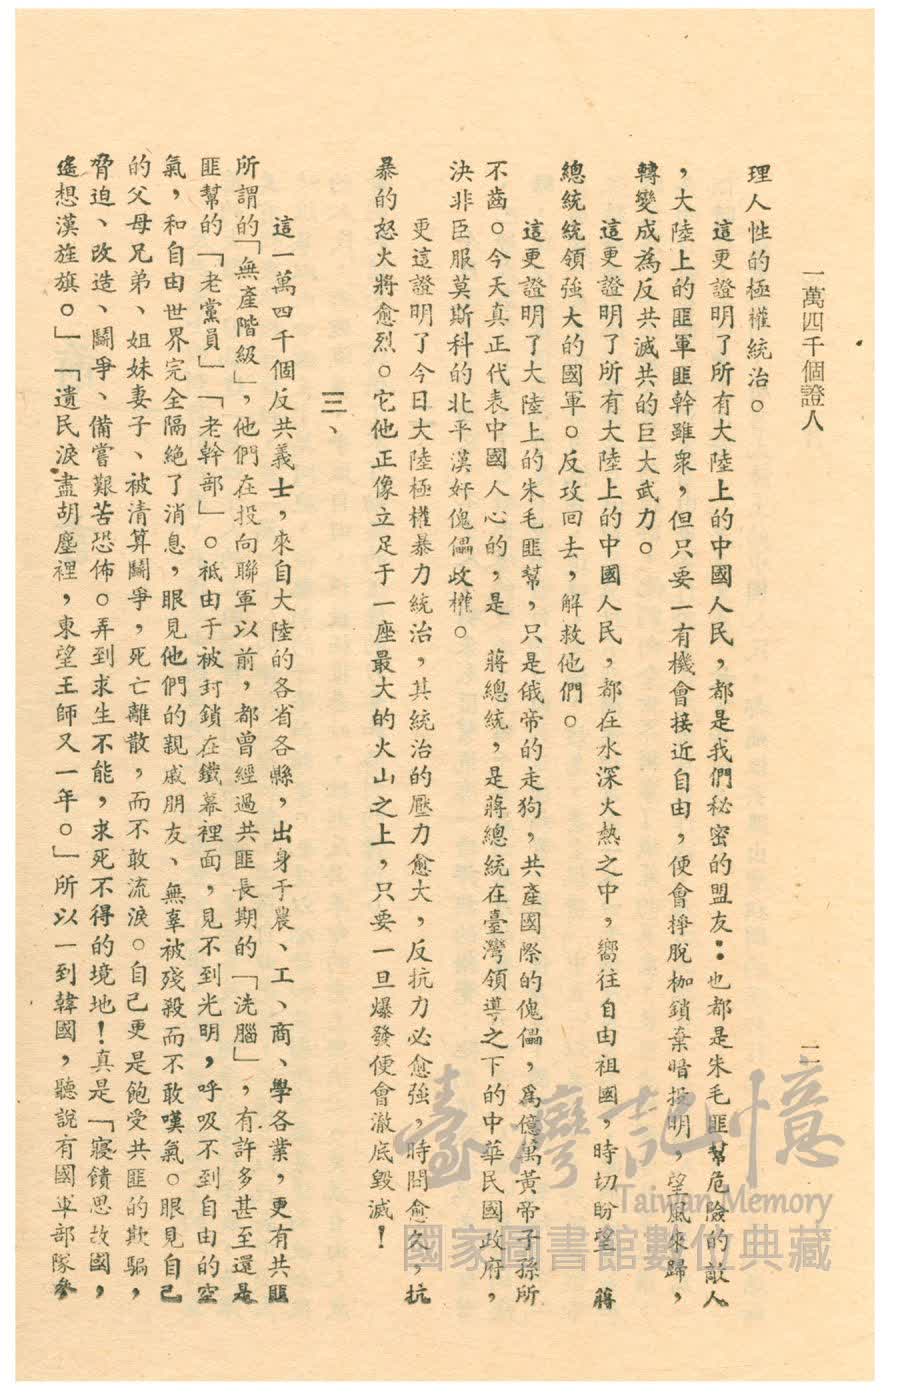 一萬四千個證人
二
理人性的極權統治。
這更證明了所有大陸上的中國人民，都是我們秘密的盟友：也都是朱毛匪幫危險的敵人
，大陸上的匪軍匪幹雖衆，但只要一有機會接近自由，便會掙脫枷鎖棄暗投明，望風來歸，
轉變成為反共滅共的巨大武力。
這更證明了所有大陸上的中國人民，都在水深火熱之中，嚮往自由祖國，時切盼望　蔣
總統統領強大的國軍。反攻回去，解救他們。
這更證明了大陸上的朱毛匪幫，只是俄帝的走狗，共產國際的傀儡，爲億萬黃帝子孫所
不齒。今天真正代表中國人心的，是　蔣總統，是蔣總統在臺灣領導之下的中華民國政府，
決非臣服莫斯科的北平漢奸傀儡政權。
更這證明了今日大陸極權暴力統治，其統治的壓力愈大，反抗力必愈強，時間愈久，抗
暴的怒火將愈烈。它他正像立足于一座最大的火山之上，只要一旦爆發便會澈底毀滅！
三、
這一萬四千個反共義士，來自大陸的各省各縣，出身于農、工、商、學各業，更有共匪
所謂的「無產階級」，他們在投向聯軍以前，都曾經過共匪長期的「洗腦」，有許多甚至還是
匪幫的「老黨員」「老幹部」。祇由于被封鎖在鐵幕裡面，見不到光明，呼吸不到自由的空
氣，和自由世界完全隔絕了消息，眼見他們的親戚朋友、無辜被殘殺而不敢嘆氣。眼見自己
的父母兄弟、姐妹妻子、被清算鬪爭，死亡離散，而不敢流淚。自己更是飽受共匪的欺騙，
脅迫、改造、鬪爭、備嘗艱苦恐佈。弄到求生不能，求死不得的境地！真是「寢饋思故國，
遙想漢旌旗。」「遺民淚盡胡塵裡，東望王師又一年。」所以一到韓國，聽說有國軍部隊參
臺灣記憶
Taiwan Memory
國家圖書館數位典藏